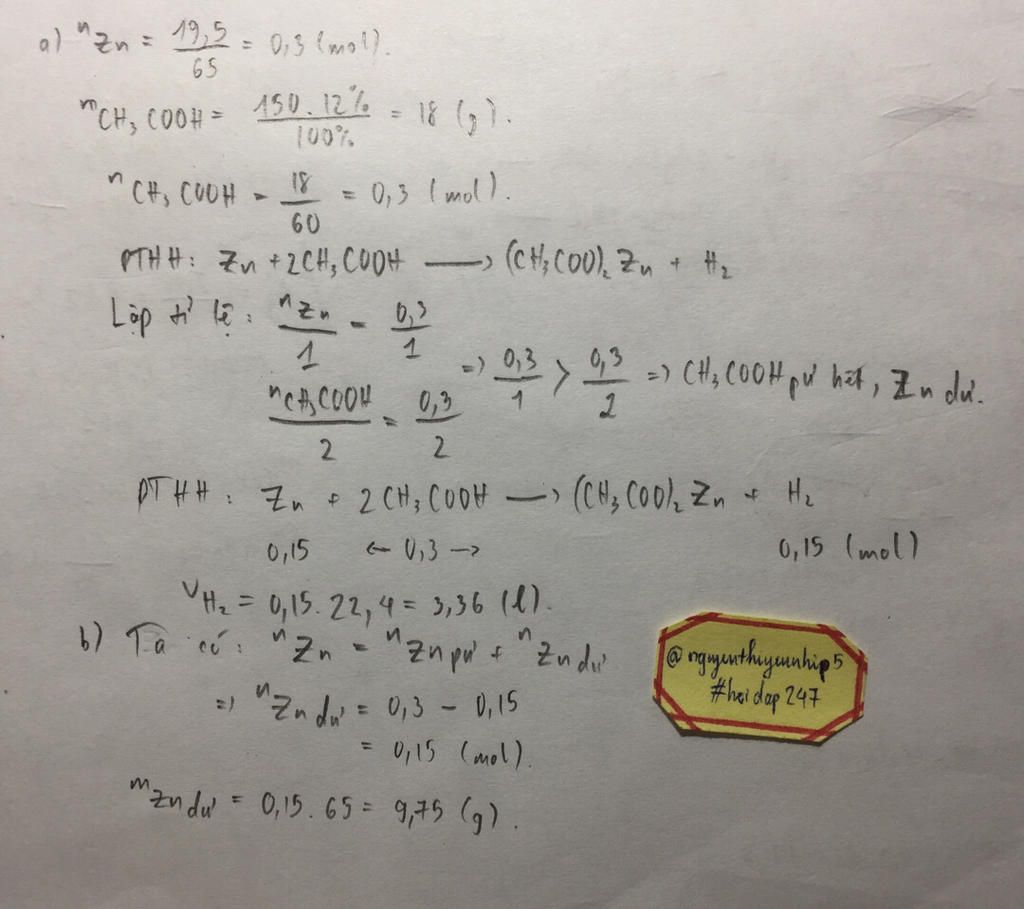 a) nZn = 19,5/65 = 0,3 (mol).
mCH₃COOH = 150.12%/100% = 18 (g).
nCH₃COOH = 18/60 = 0,3 (mol).
PTHH: Zn + 2CH₃COOH ⟶ (CH₃COO)₂Zn + H₂
Lập tỉ lệ: nZn/1 = 0,3/1
nCH₃COOH/2 = 0,3/2
=> 0,3/1 > 0,3/2 => CH₃COOH pư hết, Zn dư.
PTHH: Zn + 2CH₃COOH ⟶ (CH₃COO)₂Zn + H₂
0,15 ← 0,3 → 0,15 (mol)
VH₂ = 0,15.22,4 = 3,36 (l).
b) Ta có: nZn = nZn pư + nZn dư
=> nZn dư = 0,3 - 0,15
= 0,15 (mol).
mZn dư = 0,15.65 = 9,75 (g).
#hoidap247